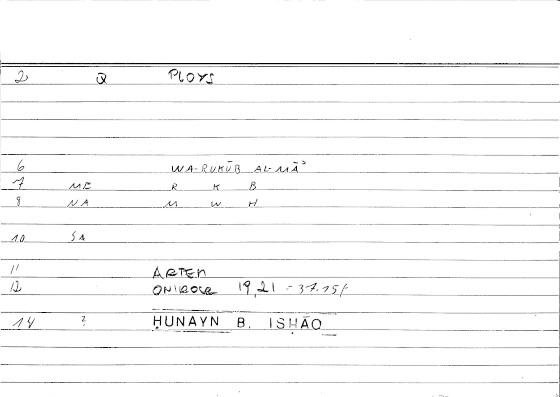 2 Q PLOYS
6 WA-RUKŪB AL-MĀʾ
7 ME R K B
8 NA M W H
10 SA
11 ARTEM
12 ONIROCR 19,21 = 37.15f
14 ? ḤUNAYN B. ISḤĀQ